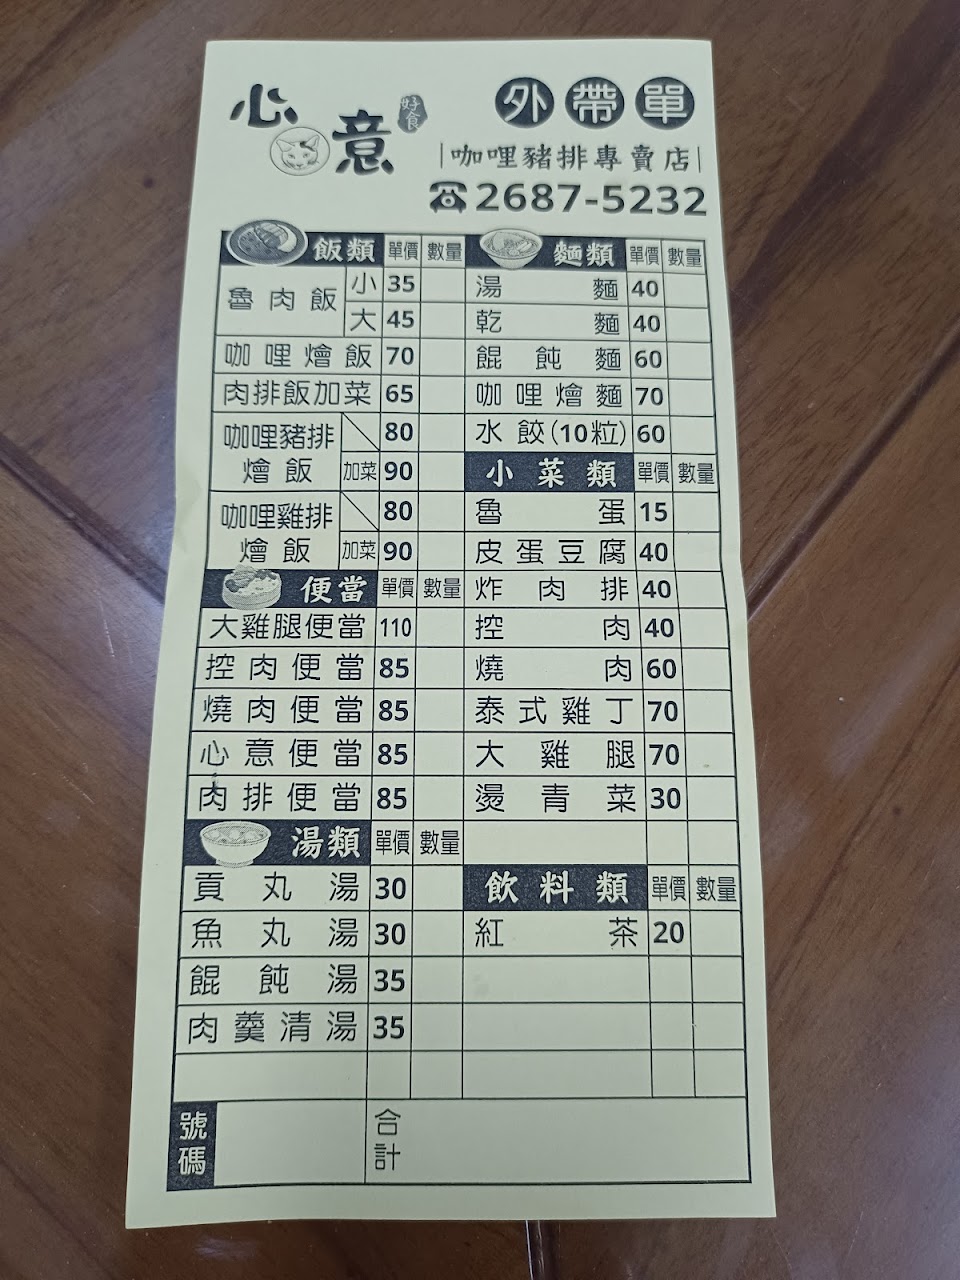 心意 好食
外帶單
咖哩豬排專賣店
☎2687-5232
飯類 單價 數量
魯肉飯 小 35
大 45
咖哩燴飯 70
肉排飯加菜 65
咖哩豬排燴飯 80
加菜 90
咖哩雞排燴飯 80
加菜 90
便當 單價 數量
大雞腿便當 110
控肉便當 85
燒肉便當 85
心意便當 85
肉排便當 85
湯類 單價 數量
貢丸湯 30
魚丸湯 30
餛飩湯 35
肉羹清湯 35
麵類 單價 數量
湯麵 40
乾麵 40
餛飩麵 60
咖哩燴麵 70
水餃(10粒) 60
小菜類 單價 數量
魯蛋 15
皮蛋豆腐 40
炸肉排 40
控肉 40
燒肉 60
泰式雞丁 70
大雞腿 70
燙青菜 30
飲料類 單價 數量
紅茶 20
號碼
合計